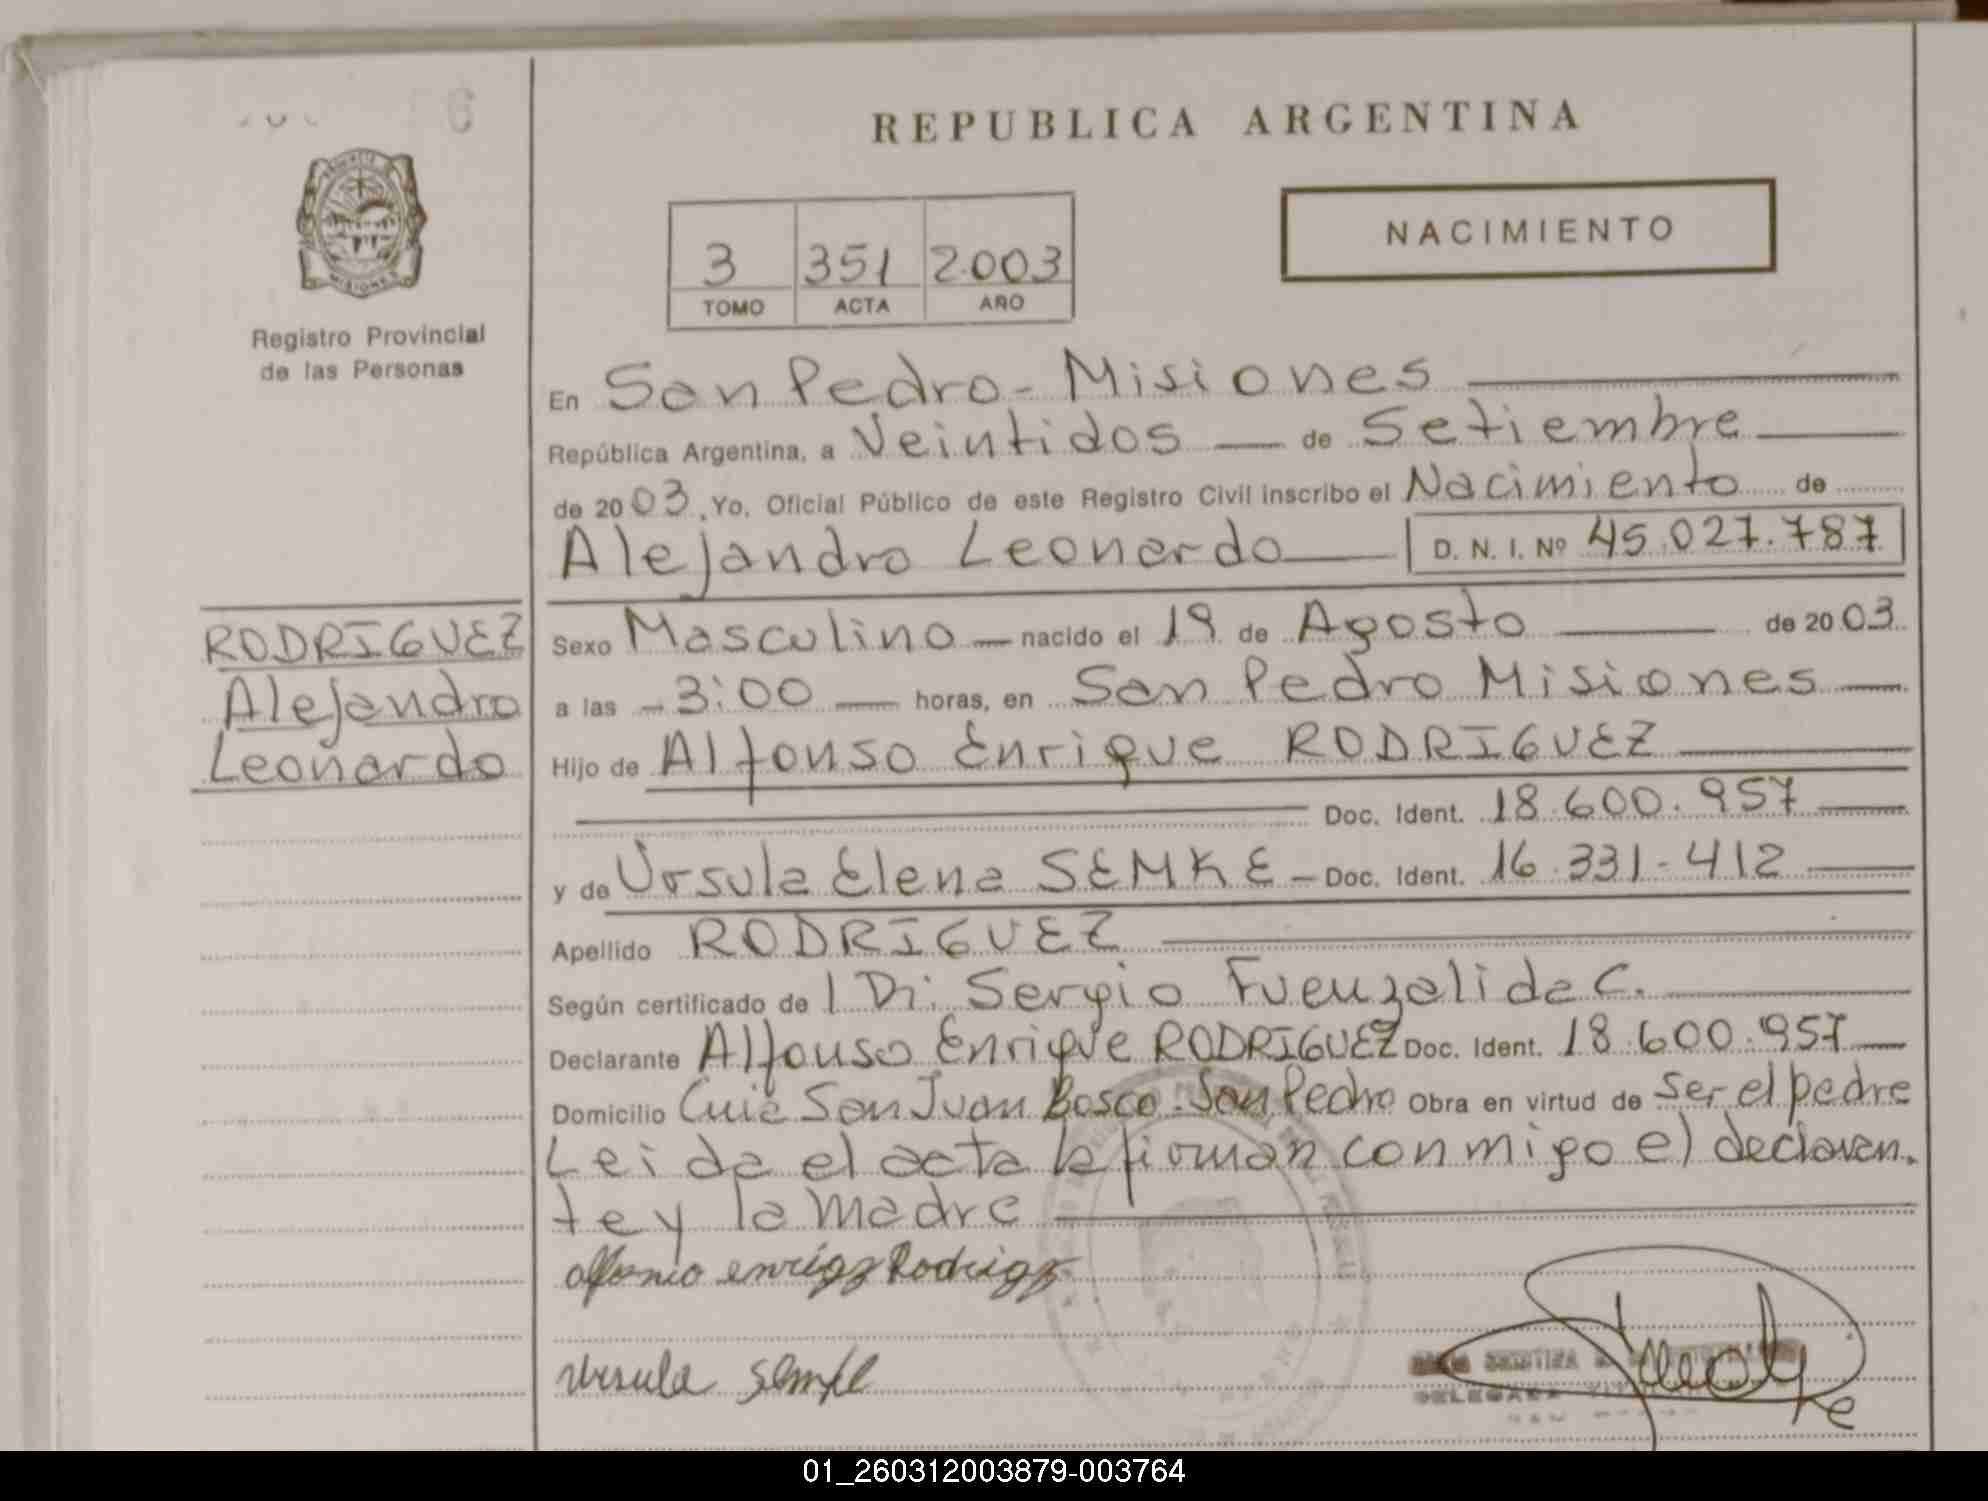 REPUBLICA ARGENTINA
NACIMIENTO
3 351 2003
TOMO ACTA AÑO
Registro Provincial
de las Personas
En San Pedro - Misiones
República Argentina, a Veintidos de Setiembre
de 2003, Yo, Oficial Público de este Registro Civil inscribo el Nacimiento de
Alejandro Leonardo D. N. I. Nº 45.027.787
RODRIGUEZ
Alejandro
Leonardo
Sexo Masculino nacido el 19 de Agosto de 2003
a las 3:00 horas, en San Pedro Misiones
Hijo de Alfonso Enrique RODRIGUEZ
Doc. Ident. 18.600.957
y de Ursula Elena SEMKE Doc. Ident. 16.331.412
Apellido RODRIGUEZ
Según certificado de Sergio Fuenzalida C.
Declarante Alfonso Enrique RODRIGUEZ Doc. Ident. 18.600.957
Domicilio San Juan Bosco - San Pedro Obra en virtud de ser el padre
Leida el acta la firman conmigo el declaran.
te y la madre
enriqz Rodrigz
ursula
DELEGADA
01_260312003879-003764